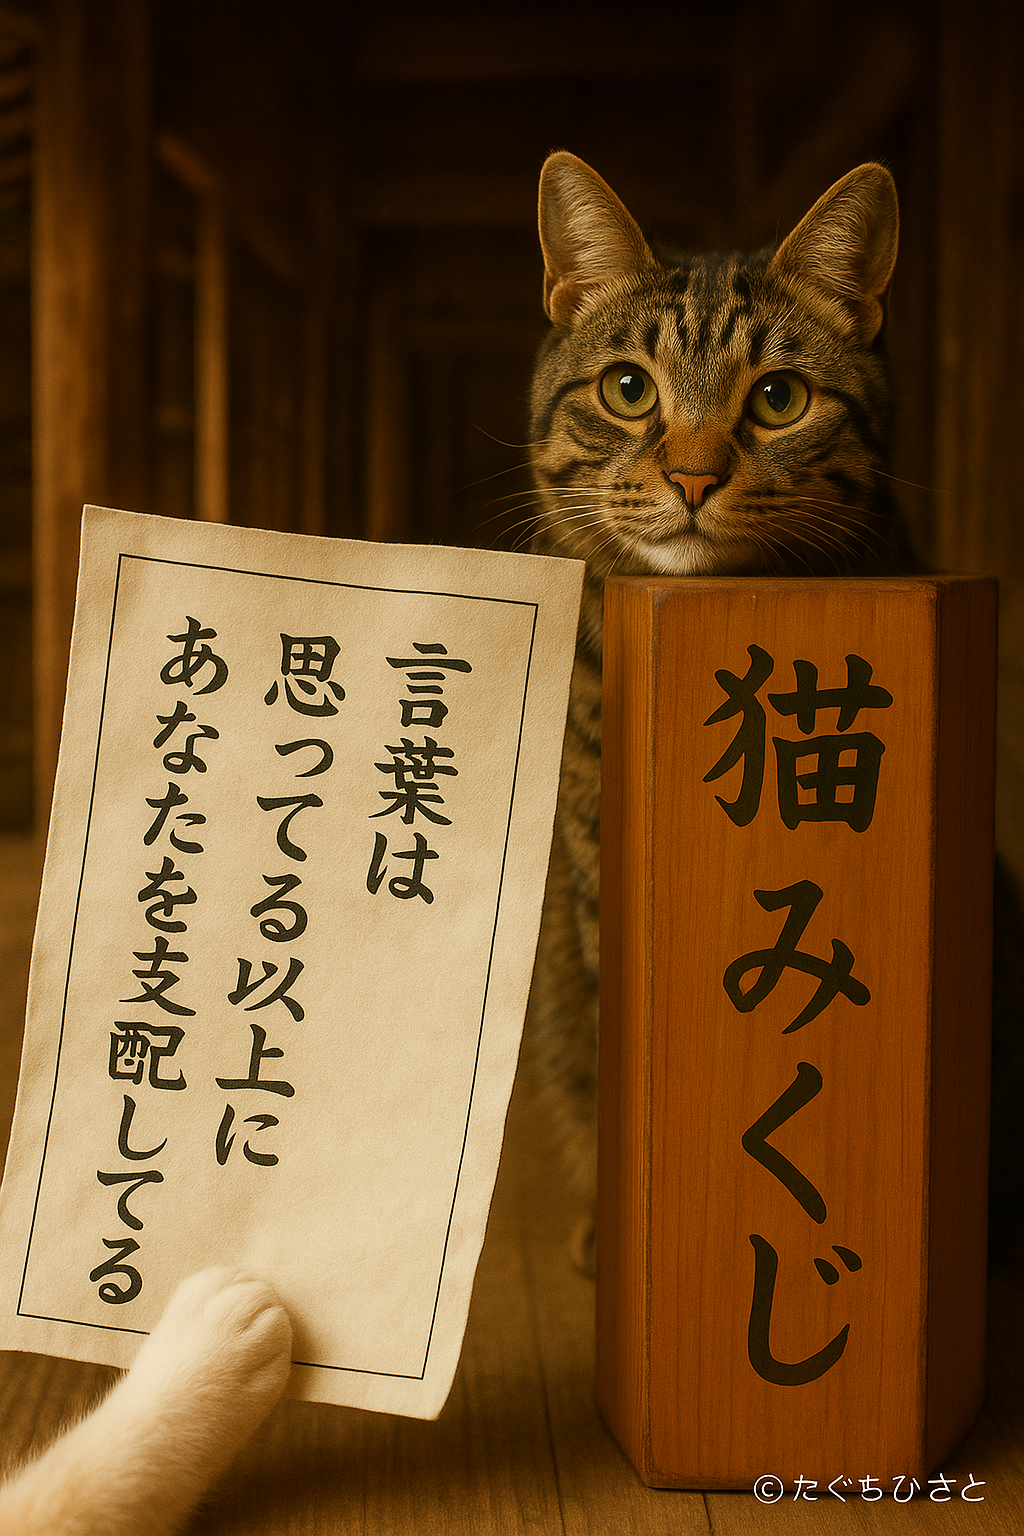 言葉は
思ってる以上に
あなたを支配してる
猫みくじ
©たぐちひさと